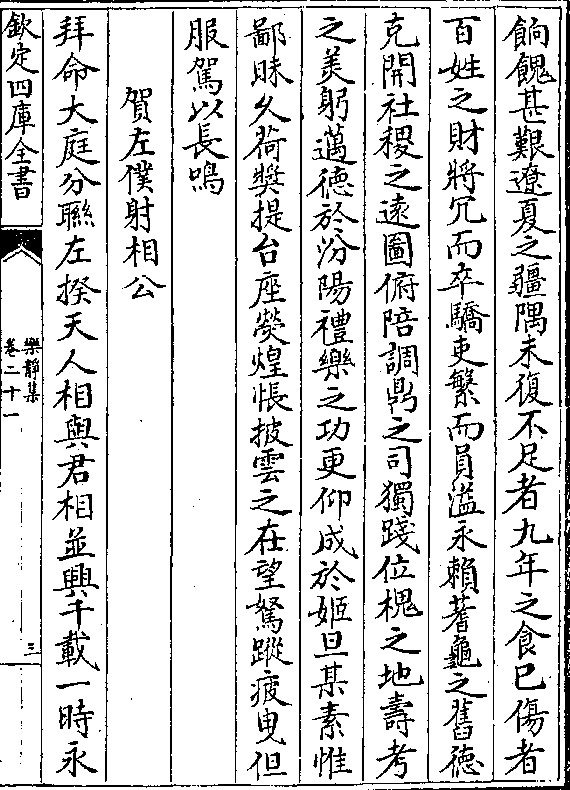 餉餽甚艱遼夏之疆隅未復不足者九年之食已傷者
百姓之財將冗而卒驕吏繁而員溢永賴蓍龜之舊德
克開社稷之遠圖俯陪調鼎之司獨踐位槐之地壽考
之美躬邁德於汾陽禮樂之功更仰成於姬旦某素惟
鄙昧久荷奬提台座熒煌悵披雲之在望駑蹤疲曳但
服駕以長鳴
賀左僕射相公
拜命大庭分聯左揆天人相與君相並興千載一時永
欽定四庫全書
樂靜集
卷二十一
三